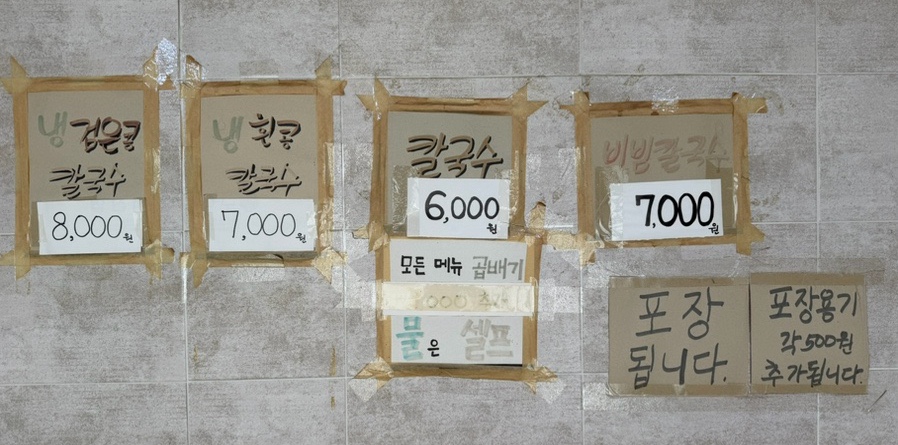 냉 검은콩
칼국수
8,000원
냉 흰콩
칼국수
7,000원
칼국수
6,000원
비빔칼국수
7,000원
모든 메뉴 곱배기
000 추가
물은 셀프
포장
됩니다.
포장용기
각 500원
추가됩니다.